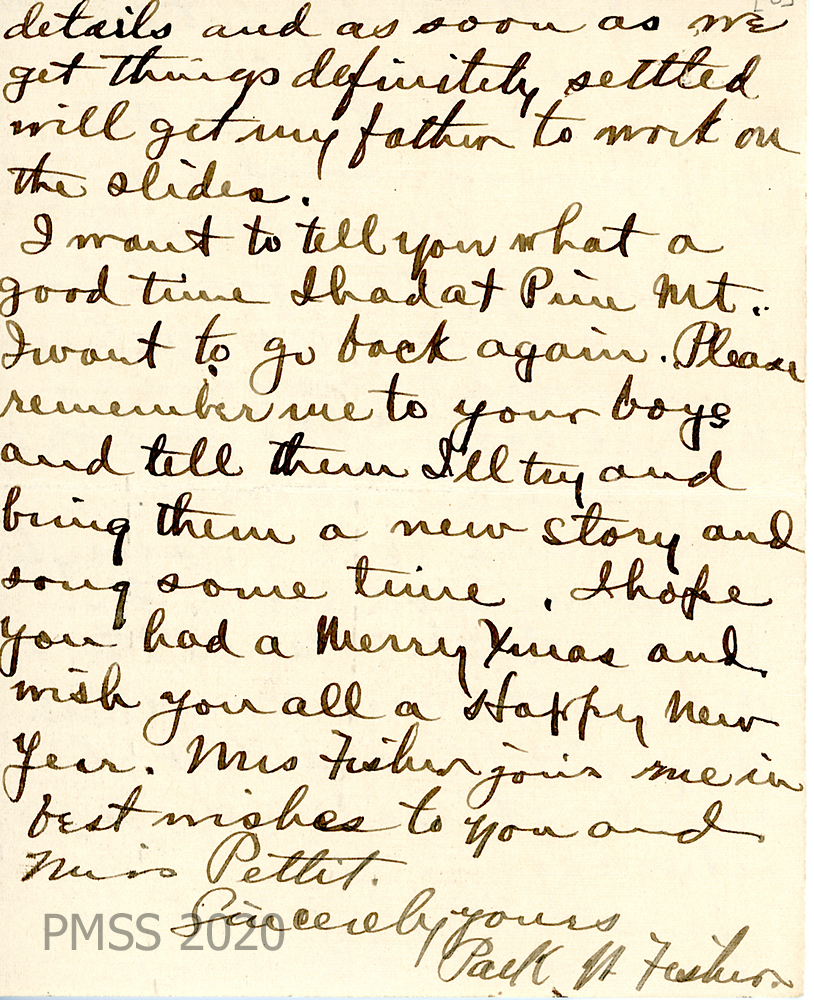 details and as soon as we
get things definitely settled
will get my father to work on
the slides.
I want to tell you what a
good time I had at Pine Mt..
I want to go back again. Please
remember me to your boys
and tell them I'll try and
bring them a new story and
song some time. I hope
you had a Merry Xmas and
wish you all a Happy New
Year. Mrs Fisher joins me in
best wishes to you and
Miss Pettit.
Sincerely yours
Park Fisher.
PMSS 2020